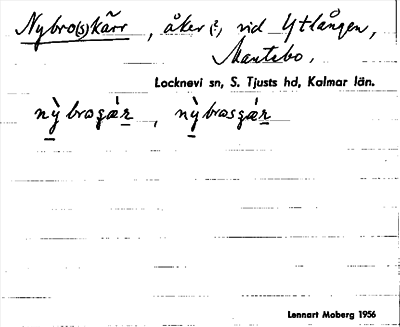 Nybro(s)kärr, åker(?), vid Ytlången,
Mantebo.
Locknevi sn, S. Tjusts hd, Kalmar län.
nỳbrogár, nỳbrosgár
Lennart Moberg 1956